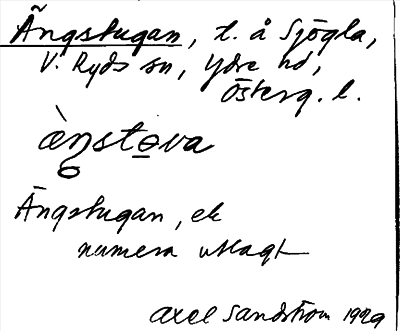 Ängstugan, t. å Sjögla,
V. Ryds sn, Ydre hd,
Österg. l.
ängstova
Ängstugan, ek
numera utlagt
Axel Sandström 1929